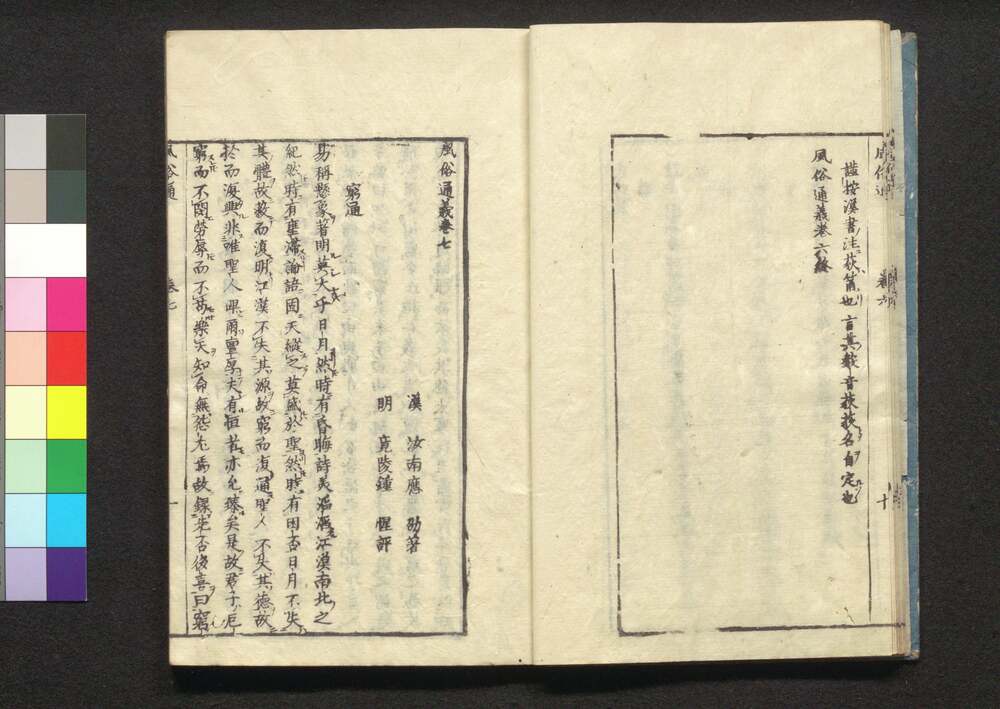 謹按漢書注荻筩也言其聲音荻荻名自定也
風俗通義卷六終
風俗通
卷六
十
風俗通義卷七
漢 汝南應 劭著
明 竟陵鍾 惺評
窮通
易稱懸象著明莫大乎日月然時有昏晦詩美滔滔江漢南北之
紀然時有壅滯論語固天縱之莫盛於聖然時有困否日月不失
其體故蔽而復明江漢不失其源故窮而復通聖人不失其德故
於而復興非唯聖人俾爾亶厚夫有恒者亦允臻矣是故君子厄
窮而不閔勞辱而不苟樂天知命無怨尤焉故錄先否後喜曰窮
風俗通
卷七
一